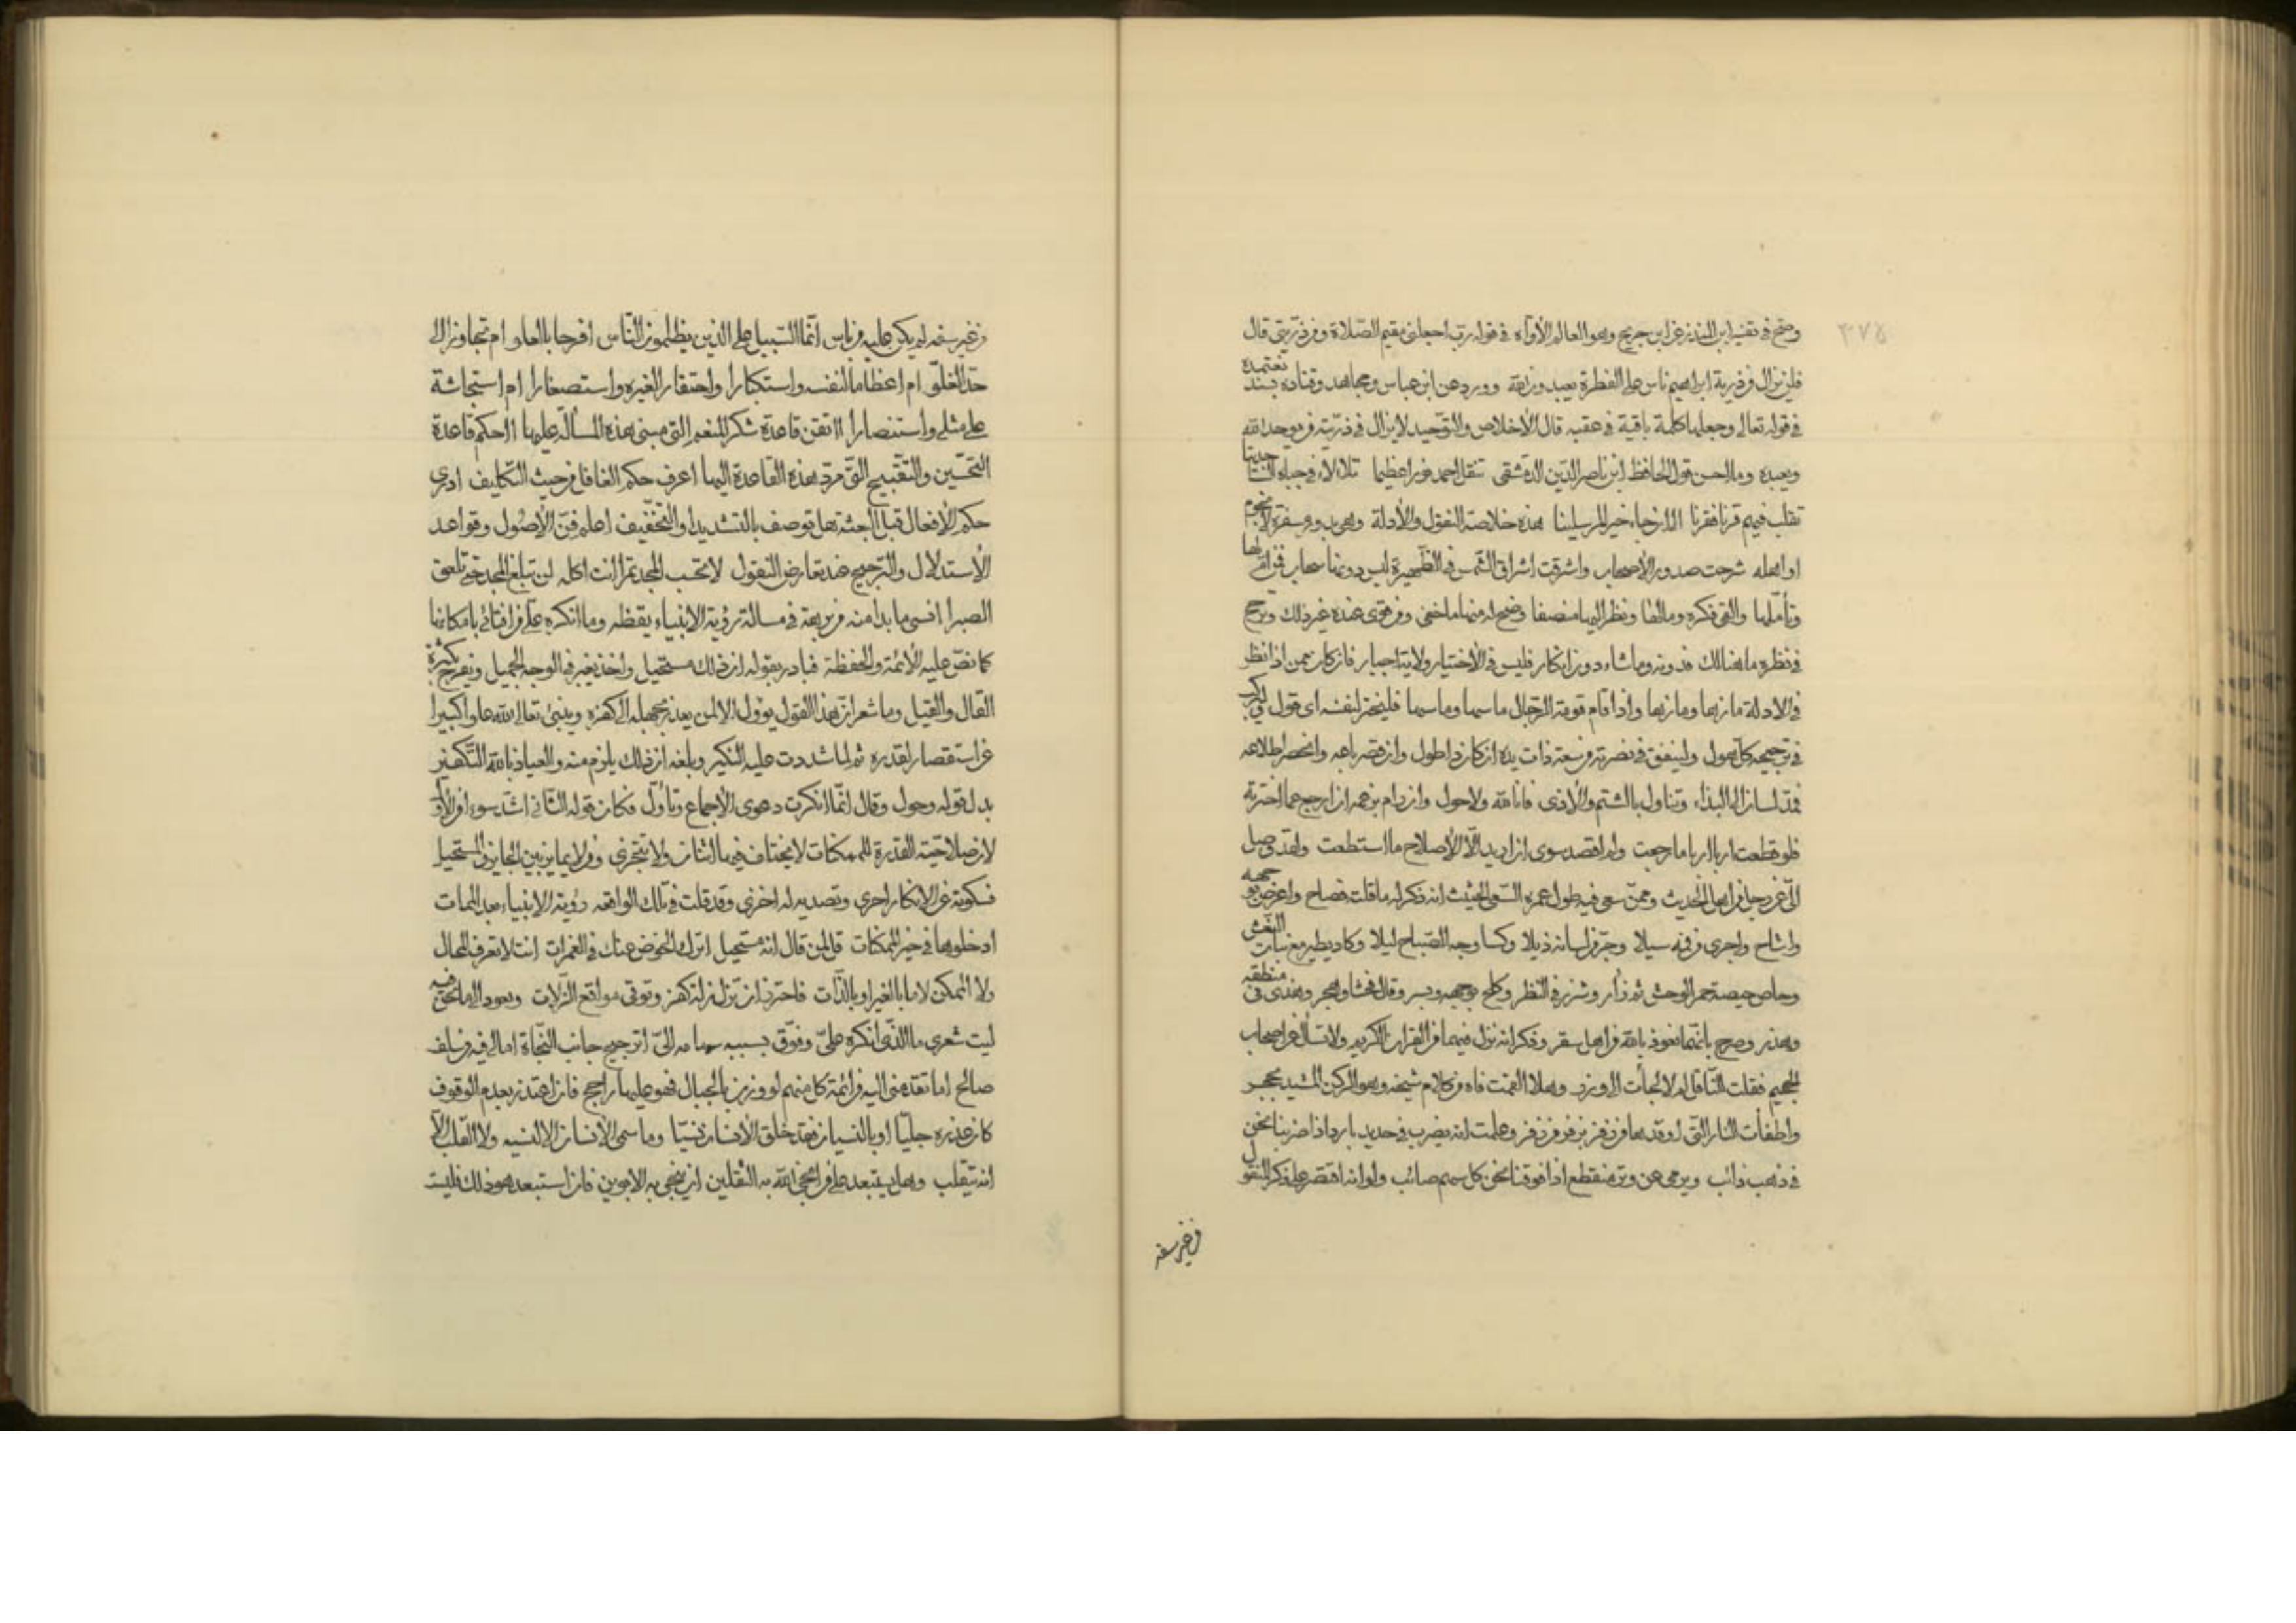 ٣٧٥
وصح في تفسير ابن المنذر عن ابن جريج وهو العالم الأواه في قوله رب اجعلني مقيم الصلاة ومن ذريتي قال
فلن يزال من ذرية ابراهيم ناس على الفطرة يعبدون الله وورد عن ابن عباس ومجاهد وقتادة بسند نعتمده
في قوله تعالى وجعلها كلمة باقية في عقبه قال الأخلاص والتوحيد لا يزال في ذريته من يوحد الله
ويعبده وما احسن قول الحافظ ابن ناصر الدين الدمشقي تنقل احمد نورا عظيما تلالأ في جباه الساجدينا
تقلب فيهم قرنا فقرنا الى ان جاء خير المرسلينا هذه خلاصة النقول والأدلة وهي بدور مسفرة لا نجوم
او اهله شرحت صدور الأصحاب واشرقت اشراق الشمس في الظهيرة ليس دونها سحاب فمن ام لها
وتأملها والقى فكره وما الغا ونظر اليها منصفا وضح له منها ما خفى ومن قوى عنده غير ذلك وترجح
في نظره ما هنالك فدونه وما شاء دون انكار فليس في الأختيار ولاية اجبار فان كان ممن اذا نظر
في الأدلة مازها ومازها واذا قام قومة الرجال ما سها وما سها فليختر لنفسه اى قول
في ترجيحه كل مهول ولينفق في نصرته من سعته ذات يده ان كان ذا طول وان قصر باعه وانحصر اطلاعه
فمد لسانه الى البذاء وتناول بالشتم والأذى فانا لله ولا حول وان رام بزعمه ان ارجع عما اخترته
فلو قطعت اربا اربا ما رجعت ولم اقصد سوى ان اريد الا الأصلاح ما استطعت ولقد وصل
الى عن رجل من اهل الحديث وممن سعى فيه طول عمره السعى الحثيث انه ذكر له ما قلت فصاح واعرض بوجهه
واشاح واجرى من فيه سيلا وجر من لسانه ذيلا وكسا وجه الصباح ليلا وكاد يطير مع بنات النعش
وحاص حيصة حمر الوحش ثم زأر وشزر في النظر وكلح بوجهه وبسر وقال فحشا وهجر وهذى في منطقه
وهذر وصرح بانهما نعوذ بالله من اهل سقر وذكر انه نزل فيهما من القران الكريم ولا تسأل عن اصحاب
الجحيم فقلت للناقل لم لا لجأت الى وزر وهلا القمت فاه من كلام شيخه وهو الركن المشيد بحجر
واطفأت النار التي اوقدها من زفر بزفر من زفر وعلمت انه يضرب في حديد بارد اذا ضربنا نحن
في ذهب ذائب ويرمى عن وتر منقطع اذا فوقنا نحن كل سهم صائب ولو انه اقتصر على ذكر النقول
من غير سفه
من غير سفه لم يكن عليه من باس انما السبيل على الذين يظلمون الناس افرحا بالعلو ام تجاوزا الى
حد الغلو ام اعظاما لنفسه واستكبارا واحتقار الغيره واستصغارا ام استجاشة
على مثلى واستنصارا اأتقن قاعدة شكر المنعم التي مبنى هذه المسألة عليها اأحكم قاعدة
التحسين والتقبيح التي مرد هذه القاعدة اليها اعرف حكم الغافل من حيث التكليف ادرى
حكم الأفعال قبل البعثة هل توصف بالتشديد او التخفيف اعلم فن الأصول وقواعد
الأستدلال والترجيح عند تعارض النقول لا تحسب المجد تمرا انت اكله لن تبلغ المجد حتى تلعق
الصبرا انسى ما بدا منه من بهتة في مسالة رؤية الانبياء يقظه وما انكره على من افتائى بامكانها
كما نص عليه الأئمة والحفظة فبادر بقوله ان ذلك مستحيل واخذ يغير في الوجه الجميل ويعرج بكثرة
القال والقيل وما شعر ان هذا القول يؤول الا لمن يعذر بجهله الى كفره وينبئ تعالى الله علوا كبيرا
عن استقصار لقدره ثم لما شددت عليه النكير وبلغه ان ذلك يلزم منه والعياذ بالله التكفير
بدل قوله وحول وقال انما انكرت دعوى الأجماع وتأول فكان قوله الثاني اشد سوءا من الأول
لان صلاحية القدرة للممكنات لا يختلف فيها اثنان ولا يتجزى ومن لا يمايز بين الجايز والمستحيل
فسكوته عن الانكار احرى وتصديه له اخزى وقد قلت في تلك الواقعه رؤية الانبياء بعد الممات
ادخلوها في حيز الممكنات قل لمن قال انه مستحيل اترك الخوض عنك في الغمرات انت لا تعرف المحال
ولا الممكن لا ما بالغير او بالذات فاحترز ان تزل زلة كفر وتوقى مواقع الزلات ونعود الى ما نحن فيه
ليت شعرى ما الذى انكره على وفوق بسببه سهامه الى اترجيح جانب النجاة امالى فيه من سلف
صالح اما تقدمنى اليه من ائمة كل منهم لو وزن بالجبال فهو عليها راجح فان اعتذر بعدم الوقوف
كان عذره جليا او بالنسيان فقد خلق الأنسان نسيا وما سمى الأنسان الا لنسيه ولا القلب الا
انه يتقلب وهل يستبعد على من انجى الله به الثقلين ان ينجى به الابوين فان استبعد هو ذلك فليست